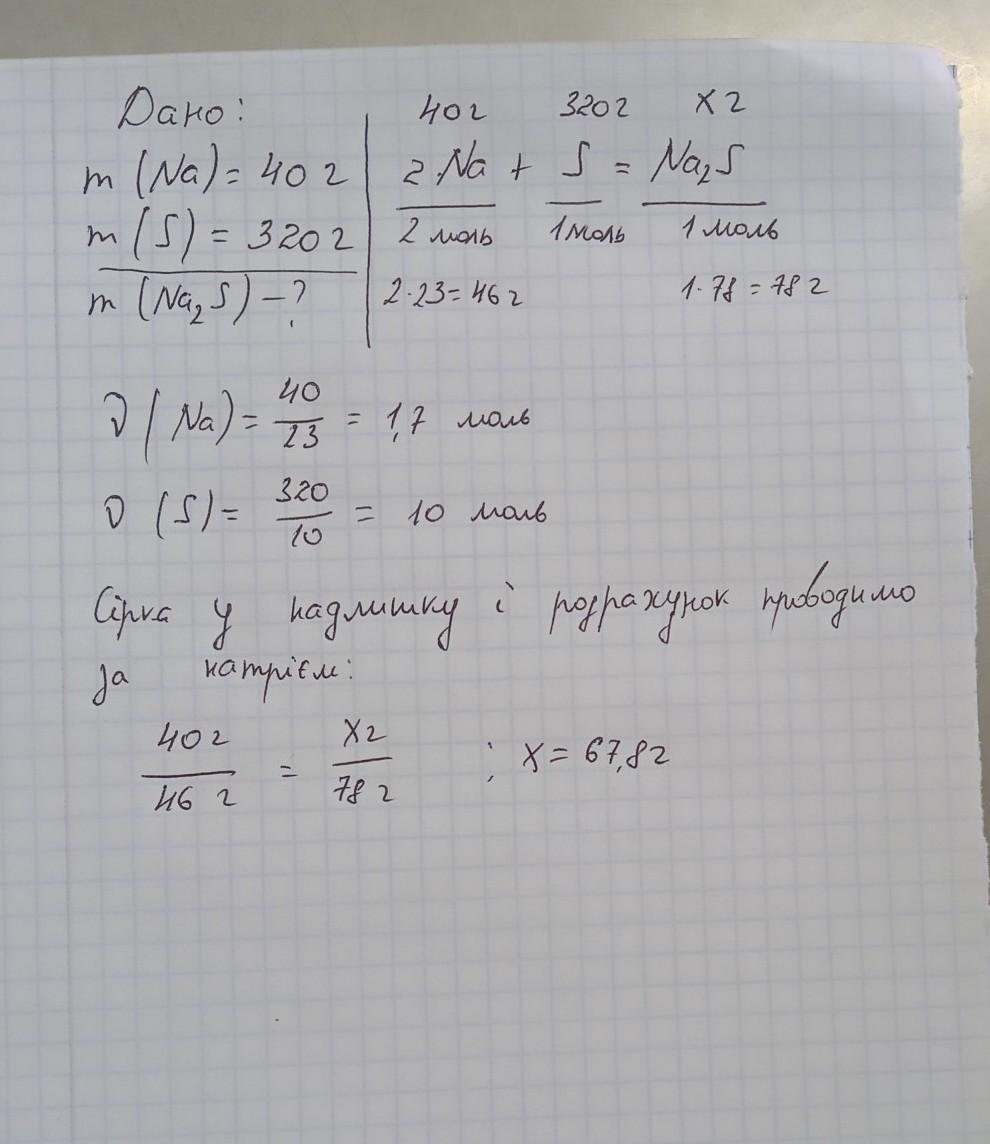 Дано:
m (Na) = 40 г
m (S) = 320 г
m (Na₂S) – ?
40 г 320 г X г
2 Na + S = Na₂S
2 моль 1 моль 1 моль
2·23 = 46 г 1·78 = 78 г
ν (Na) = 40/23 = 1,7 моль
ν (S) = 320/10 = 10 моль
Сірка у надлишку і розрахунок проводимо
за натрієм:
40 г / 46 г = X г / 78 г ; X = 67,8 г